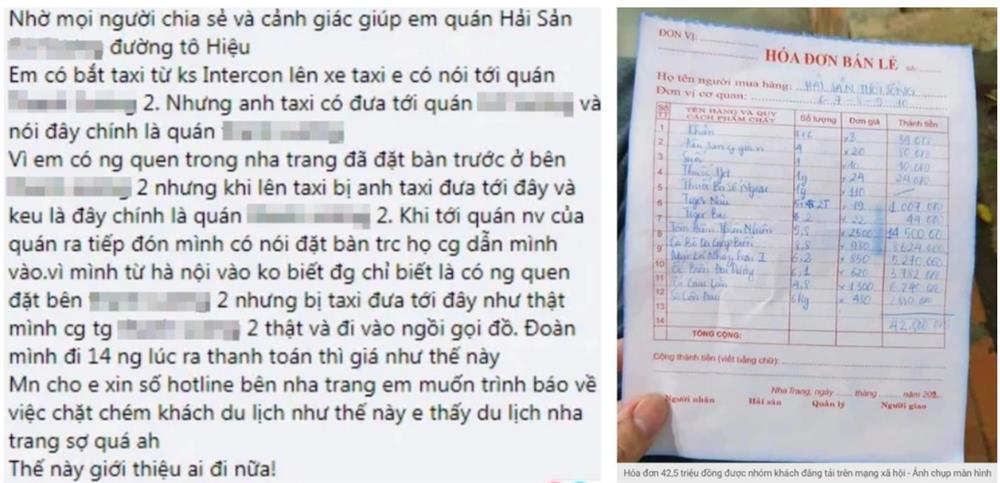 Nhờ mọi người chia sẻ và cảnh giác giúp em quán Hải Sản
đường tô Hiệu
Em có bắt taxi từ ks Intercon lên xe taxi e có nói tới quán
2. Nhưng anh taxi có đưa tới quán và
nói đây chính là quán
Vì em có ng quen trong nha trang đã đặt bàn trước ở bên
2 nhưng khi lên taxi bị anh taxi đưa tới đây và
keu là đây chính là quán 2. Khi tới quán nv của
quán ra tiếp đón mình có nói đặt bàn trc họ cg dẫn mình
vào.vì mình từ hà nội vào ko biết đg chỉ biết là có ng quen
đặt bên 2 nhưng bị taxi đưa tới đây như thật
mình cg tg 2 thật và đi vào ngồi gọi đồ. Đoàn
mình đi 14 ng lúc ra thanh toán thì giá như thế này
Mn cho e xin số hotline bên nha trang em muốn trình báo về
việc chặt chém khách du lịch như thế này e thấy du lịch nha
trang sợ quá ah
Thế này giới thiệu ai đi nữa!
ĐƠN VỊ:
HÓA ĐƠN BÁN LẺ
Họ tên người mua hàng: HẢI SẢN TƯƠI SỐNG
Đơn vị cơ quan: 6-7-8-9-10
Số TT TÊN HÀNG VÀ QUY CÁCH PHẨM CHẤT Số lượng Đơn giá Thành tiền
1 Khăn x3
2 4 x20 80.000
3 1 x10 10.000
4 1g x24 24.000
5 1g x110
6 Tiger Nâu x19 1.007.000
7 Tiger Bạc 2 x22 44.000
8 5,8 x2500 14.500.00
9 8,8 x980 8624.000
10 6,2 x850 5.270.000
11 6,1 x620 3.782.000
12 4,8 x1300 6.240.00
13 6kg x480
14 42.500.00
TỔNG CỘNG:
Cộng thành tiền (viết bằng chữ):
Nha Trang, ngày tháng năm 202
Người nhận Hải sản Quản lý Người giao
Hóa đơn 42,5 triệu đồng được nhóm khách đăng tải trên mạng xã hội - Ảnh chụp màn hình